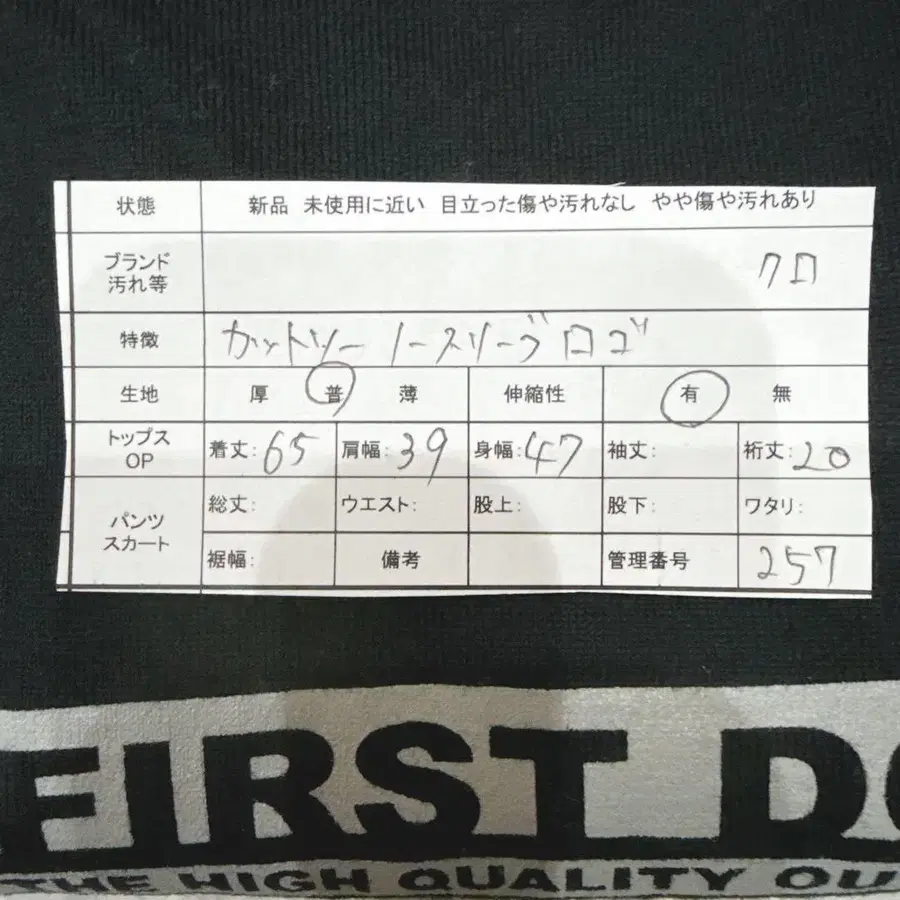 状態 新品 未使用に近い 目立った傷や汚れなし やや傷や汚れあり
ブランド
汚れ等 クロ
特徴 カットソー ノースリーブ ロゴ
生地 厚 普 薄 伸縮性 有 無
トップス
OP 着丈: 65 肩幅: 39 身幅: 47 袖丈: 裄丈: 20
パンツ
スカート 総丈: ウエスト: 股上: 股下: ワタリ:
裾幅: 備考 管理番号 257
FIRST DO
THE HIGH QUALITY OU